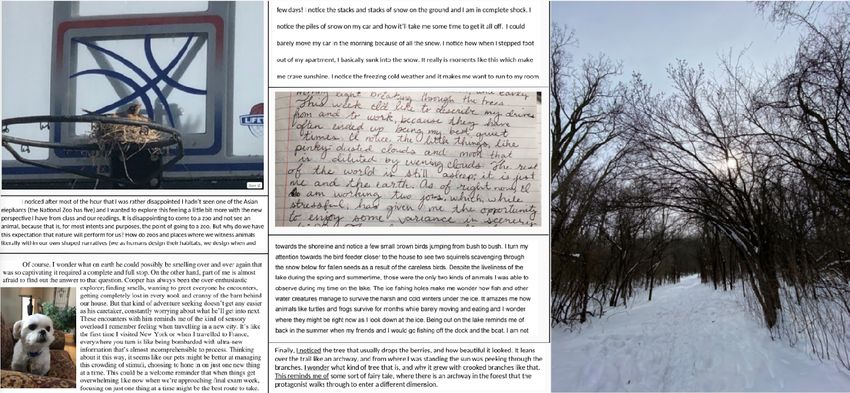 LIFETI
I noticed after most of the hour that I was rather disappointed I hadn't seen one of the Asian
elephants (the National Zoo has five) and I wanted to explore this feeling a little bit more with the new
perspective I have from class and our readings. It is disappointing to come to a zoo and not see an
animal, because that is, for most intents and purposes, the point of going to a zoo. But why do we have
this expectation that nature will perform for us? How do zoos and places where we witness animals
literally within our own shaped narratives (we as humans design their habitats, we design when and
Of course, I wonder what on earth he could possibly be smelling over and over again that
was so captivating it required a complete and full stop. On the other hand, part of me is almost
afraid to find out the answer to that question. Cooper has always been the over-enthusiastic
explorer; finding smells, wanting to greet everyone he encounters,
getting completely lost in every nook and cranny of the barn behind
our house. But that kind of adventure seeking doesn't get any easier
as his caretaker, constantly worrying about what he'll get into next.
These encounters with him reminds me of the kind of sensory
overload I remember feeling when travelling in a new city. It's like
the first time I visited New York or when I travelled to France,
everywhere you turn is like being bombarded with ultra-new
information that's almost incomprehensible to process. Thinking
about it this way, it seems like our pets might be better at managing
this crowding of stimuli, choosing to hone in on just one new thing
at a time. This could be a welcome reminder that when things get
overwhelming like now when we're approaching final exam week,
focusing on just one thing at a time might be the best route to take.
few days! I notice the stacks and stacks of snow on the ground and I am in complete shock. I
notice the piles of snow on my car and how it'll take me some time to get it all off. I could
barely move my car in the morning because of all the snow. I notice how when I stepped foot
out of my apartment, I basically sunk into the snow. It really is moments like this which make
me crave sunshine. I notice the freezing cold weather and it makes me want to run to my room
light breaking through the trees
This week I'd like to describe my drives
from and to work, because they have
often ended up being my best, quiet
times. I notice the little things, like
pinky dusted clouds and moon that
is diluted by evening clouds. The rest
of the world is still asleep, it is just
me and the earth. As of right now, I
am working two jobs, which, while
stressful, has given me the opportunity
to enjoy some variance in
towards the shoreline and notice a few small brown birds jumping from bush to bush. I turn my
attention towards the bird feeder closer to the house to see two squirrels scavenging through
the snow below for falen seeds as a result of the careless birds. Despite the liveliness of the
lake during the spring and summertime, those were the only two kinds of animals I was able to
observe during my time on the lake. The ice fishing holes make me wonder how fish and other
water creatures manage to survive the harsh and cold winters under the ice. It amazes me how
animals like turtles and frogs survive for months while barely moving and eating and I wonder
where they might be right now as I look down at the ice. Being out on the lake reminds me of
back in the summer when my friends and I would go fishing off the dock and the boat. I am not
Finally, I noticed the tree that usually drops the berries, and how beautiful it looked. It leans
over the trail like an archway, and from where I was standing the sun was peeking through the
branches. I wonder what kind of tree that is, and why it grew with crooked branches like that.
This reminds me of some sort of fairy tale, where there is an archway in the forest that the
protagonist walks through to enter a different dimension.